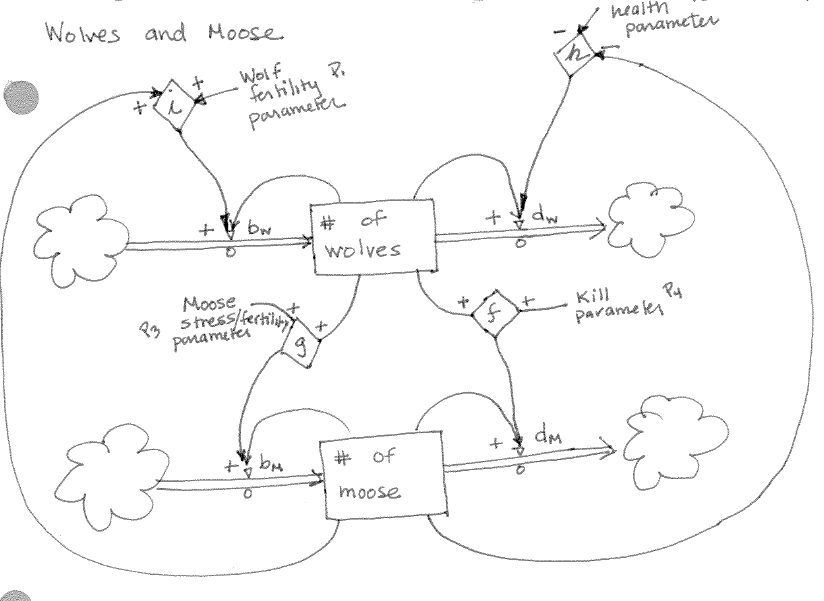 Wolves and Moose
health
parameter
−
−
h
Wolf P1
fertility
parameter
+
+
i
+ bw
# of
wolves
+ dw
Moose
stress/fertility
P3 parameter
+
+
g
+
+
f
Kill
parameter P4
+ bM
# of
moose
+ dM